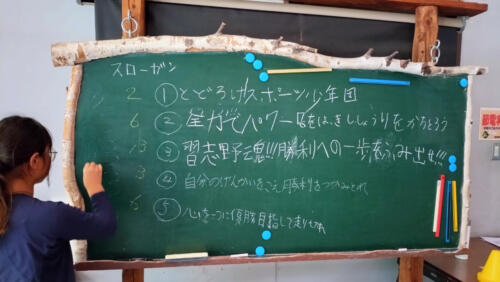 スローガン
2 ①とどろけスポーツ少年団
6 ②全力でパワーをはっきししょうりをかちとろう
13 ③習志野魂!!!勝利への一歩をふみ出せ!!!
3 ④自分のげんかいをこえ勝利をつかみとれ
6 ⑤心を一つに優勝目指して走りぬけ